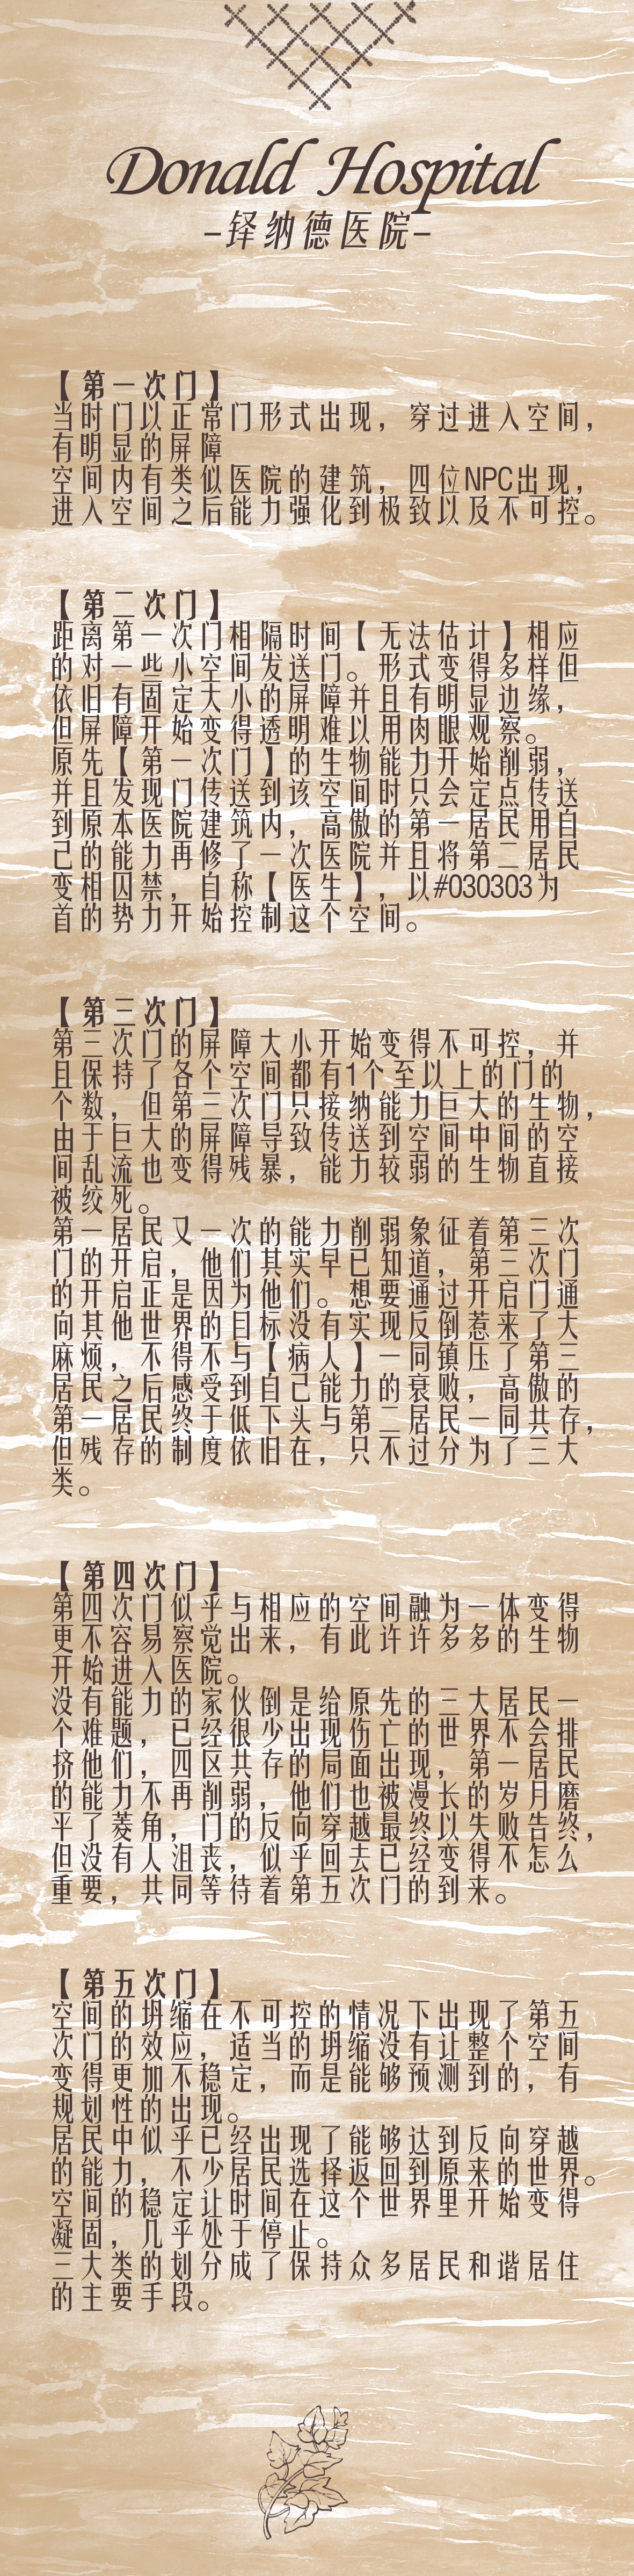 Donald Hospital
-铎纳德医院-
【第一次门】
当时门以正常门形式出现，穿过进入空间，
有明显的屏障
空间内有类似医院的建筑，四位NPC出现，
进入空间之后能力强化到极致以及不可控。
【第二次门】
距离第一次门相隔时间【无法估计】相应
的对一些小空间发送门。形式变得多样但
依旧有固定大小的屏障并且有明显边缘，
但屏障开始变得透明难以用肉眼观察。
原先【第一次门】的生物能力开始削弱，
并且发现门传送到该空间时只会定点传送
到原本医院建筑内，高傲的第一居民用自
己的能力再修了一次医院并且将第二居民
变相囚禁，自称【医生】，以#030303为
首的势力开始控制这个空间。
【第三次门】
第三次门的屏障大小开始变得不可控，并
且保持了各个空间都有1个至以上的门的
个数，但第三次门只接纳能力巨大的生物，
由于巨大的屏障导致传送到空间中间的空
间乱流也变得残暴，能力较弱的生物直接
被绞死。
第一居民又一次的能力削弱象征着第三次
门的开启，他们其实早已知道，第三次门
的开启正是因为他们。想要通过开启门通
向其他世界的目标没有实现反倒惹来了大
麻烦，不得不与【病人】一同镇压了第三
居民之后感受到自己能力的衰败，高傲的
第一居民终于低下头与第二居民一同共存，
但残存的制度依旧在，只不过分为了三大
类。
【第四次门】
第四次门似乎与相应的空间融为一体变得
更不容易察觉出来，有此许许多多的生物
开始进入医院。
没有能力的家伙倒是给原先的三大居民一
个难题，已经很少出现伤亡的世界不会排
挤他们，四区共存的局面出现，第一居民
的能力不再削弱，他们也被漫长的岁月磨
平了菱角，门的反向穿越最终以失败告终，
但没有人沮丧，似乎回去已经变得不怎么
重要，共同等待着第五次门的到来。
【第五次门】
空间的坍缩在不可控的情况下出现了第五
次门的效应，适当的坍缩没有让整个空间
变得更加不稳定，而是能够预测到的，有
规划性的出现。
居民中似乎已经出现了能够达到反向穿越
的能力，不少居民选择返回到原来的世界。
空间的稳定让时间在这个世界里开始变得
凝固，几乎处于停止。
三大类的划分成了保持众多居民和谐居住
的主要手段。